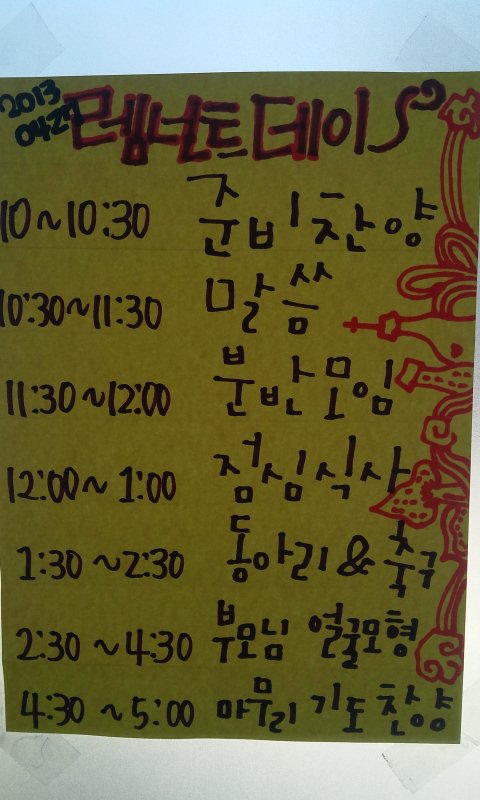 2013
0427
렘넌트데이
10~10:30 준비찬양
10:30~11:30 말씀
11:30~12:00 분반모임
12:00~1:00 점심식사
1:30~2:30 동아리&축구
2:30~4:30 부모님 얼굴모형
4:30~5:00 마무리 기도찬양